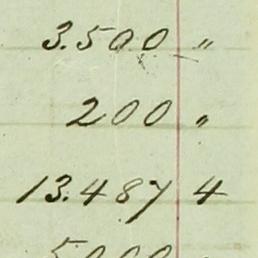 3.500 "
200 "
13.487 4